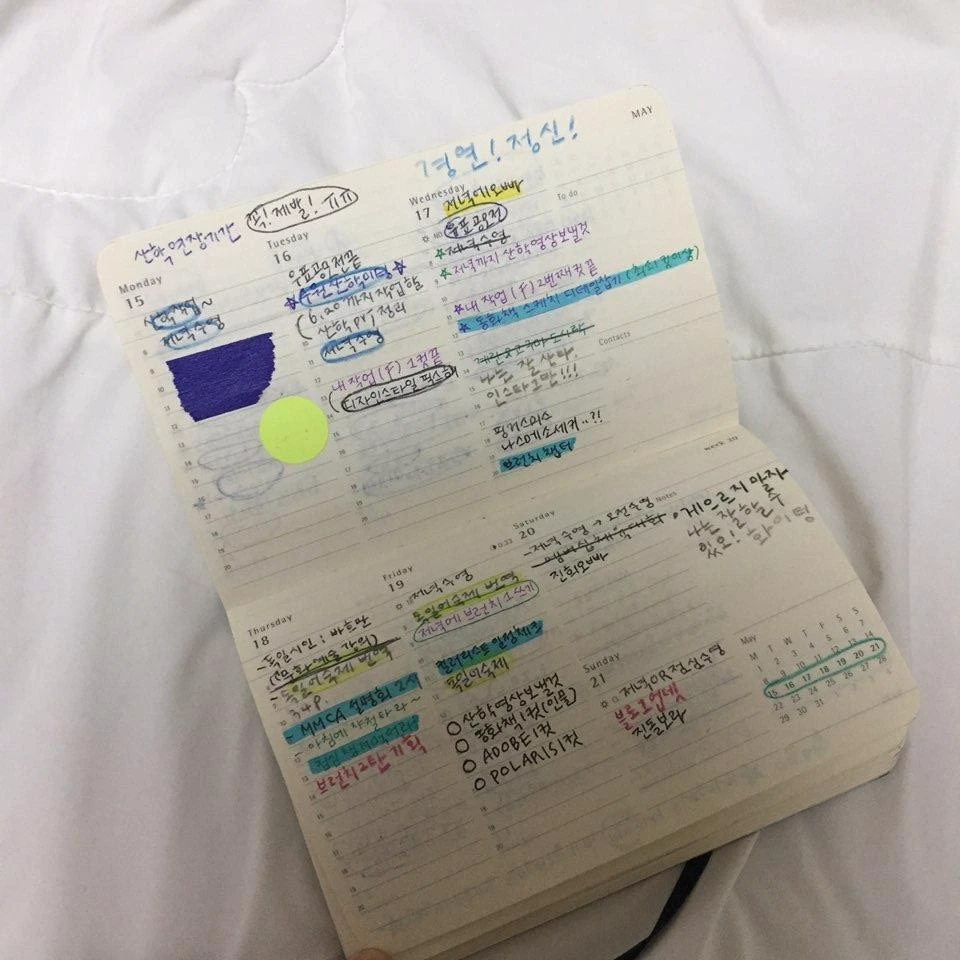 MAY
경연! 정신!
산학연장기간 꼭! 제발! ㄲㄲ
Monday
15
산학작업~
저녁수영
Tuesday
16
우표공모전끝
(6.20까지 작업할
산학PPT 정리
저녁수영
내 작업(F) 1컷끝
(디자인스타일 픽스해
Wednesday
17
저녁에오빠
우표공모전
저녁수영
저녁까지 산학영상보낼것
내 작업(F) 2번째컷끝
동화책 스케치 디테일잡기
나는 잘 산다
인스타로만!!!
핑거스미스
나쓰메소세키..?!
브런치 챕터
To do
Contacts
week 20
Thursday
18
독일시인 : 바흐만
독일어숙제 번역
34p.
- MMCA 설명회 2시
- 아침에 자척타라~
브런치 2탄 기획
Friday
19
저녁수영
독일어숙제 번역
저녁에 브런치 1쓰기
컬러리스트 일정체크
독일어숙제
○ 산학영상보낼것
○ 동화책 1컷(인물)
○ ADOBE 1컷
○ POLARIS 1컷
Saturday
20
- 저녁수영 → 오전수영
진희오빠
Sunday
21
저녁OR점심수영
블로그업뎃
진돌보라
Notes
• 게으르지 말자
나는 잘할 수
있오! 화이팅
May
M T W T F S S
1 2 3 4 5 6 7
8 9 10 11 12 13 14
15 16 17 18 19 20 21
22 23 24 25 26 27 28
29 30 31